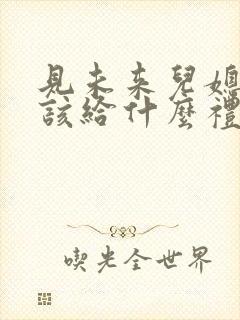 見未來兒媳
該給什麼禮
喫光全世界